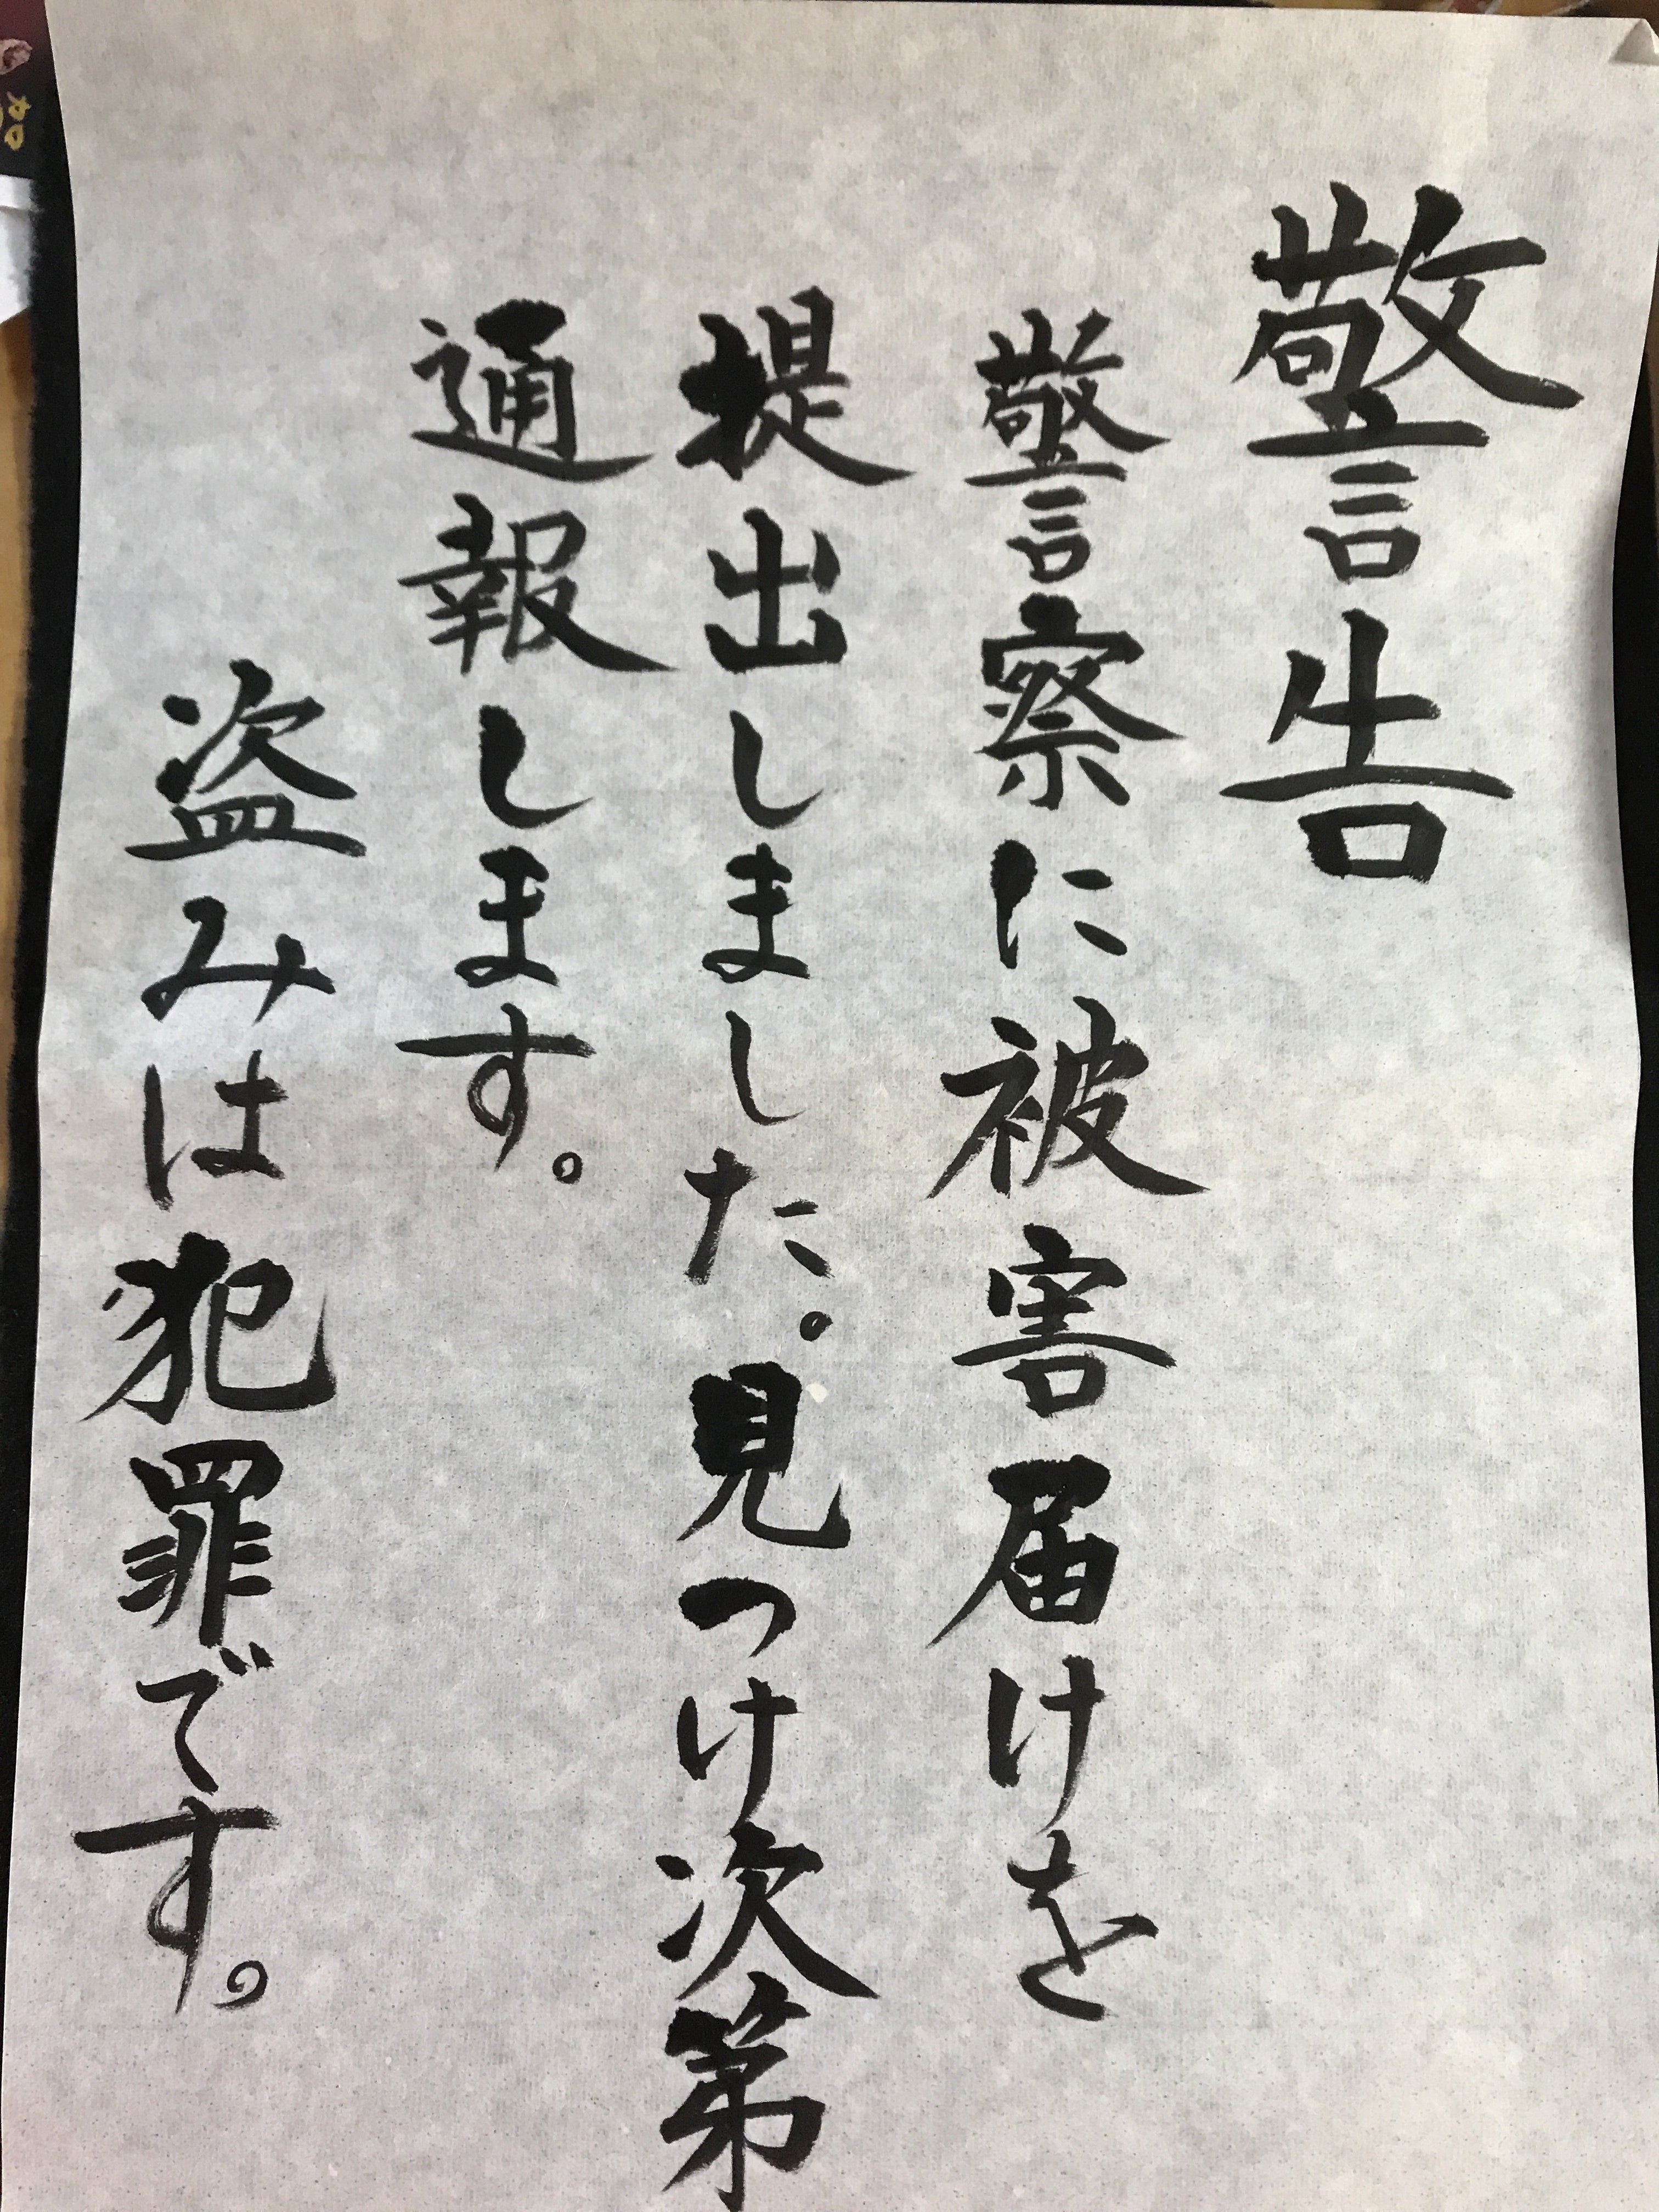 警告
警察に被害届けを
提出しました。見つけ次第
通報します。
盗みは犯罪です。